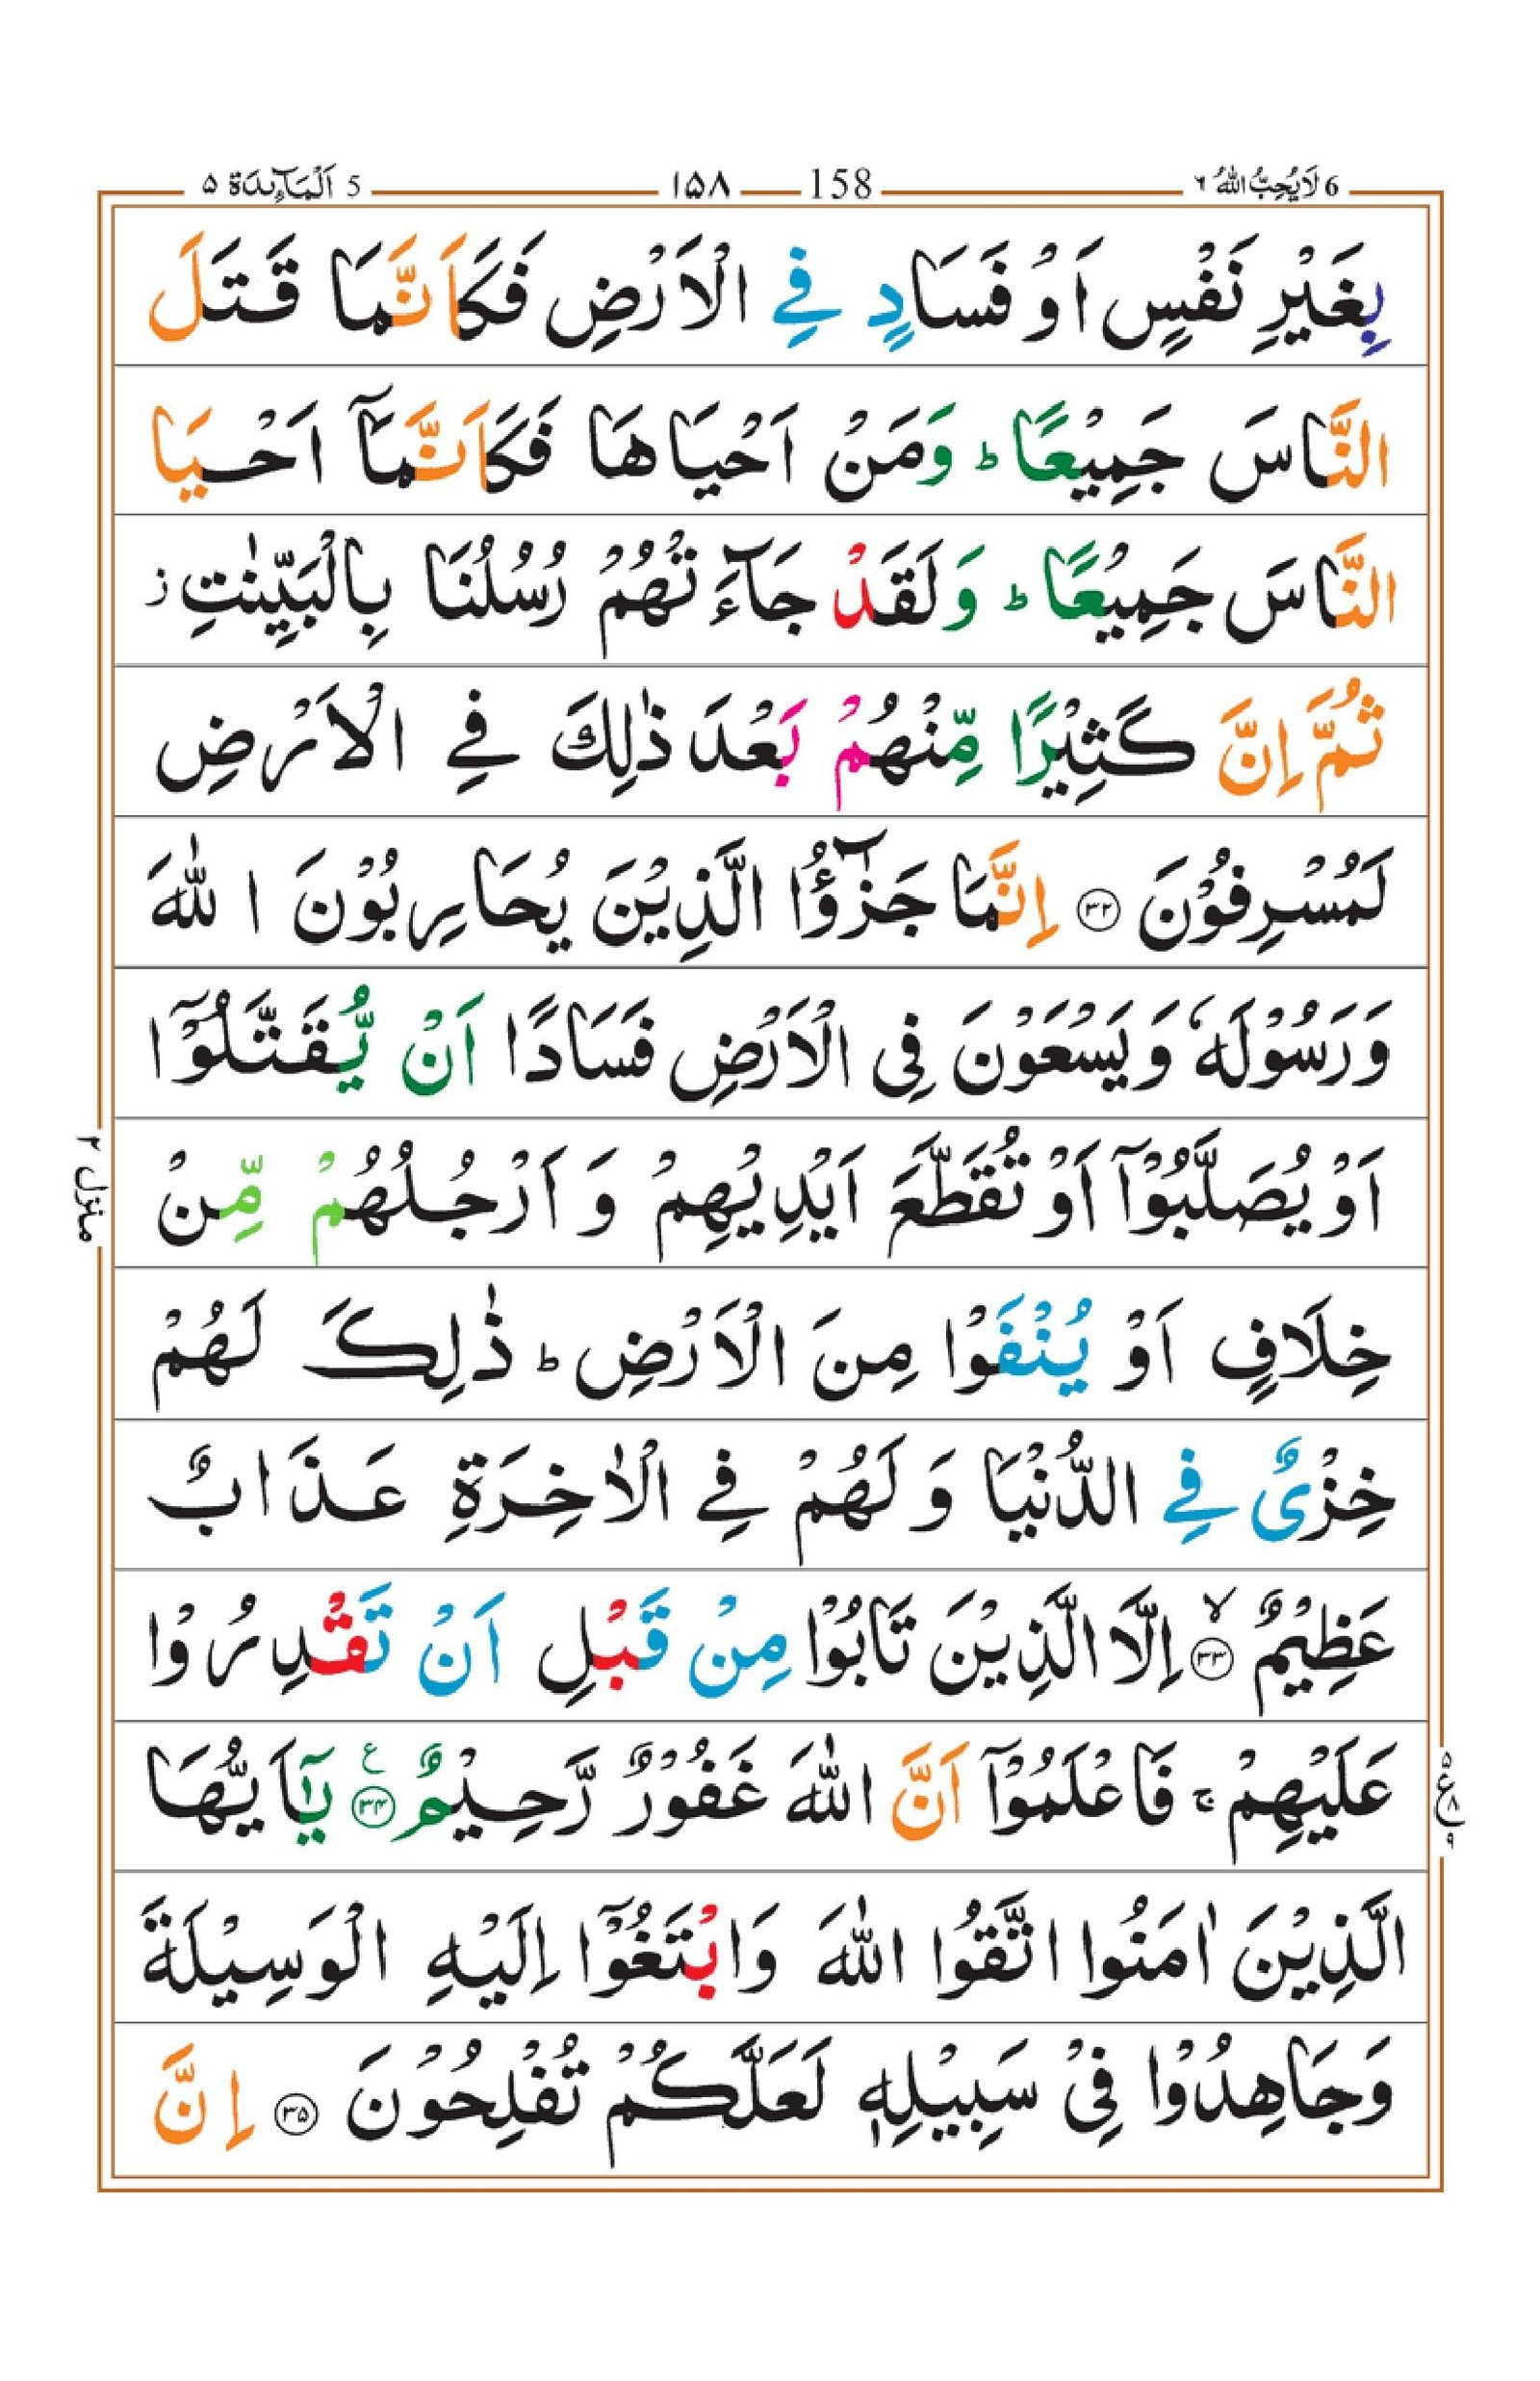 6 لَا يُحِبُّ اللّٰهُ ٦ 158 ١٥٨ 5 اَلْمَآئِدَة ٥
بِغَيْرِ نَفْسٍ اَوْ فَسَادٍ فِي الْاَرْضِ فَكَاَنَّمَا قَتَلَ
النَّاسَ جَمِيْعًا ؕ وَمَنْ اَحْيَاهَا فَكَاَنَّمَآ اَحْيَا
النَّاسَ جَمِيْعًا ؕ وَلَقَدْ جَآءَتْهُمْ رُسُلُنَا بِالْبَيِّنٰتِ ز
ثُمَّ اِنَّ كَثِيْرًا مِّنْهُمْ بَعْدَ ذٰلِكَ فِي الْاَرْضِ
لَمُسْرِفُوْنَ ۝۳۲ اِنَّمَا جَزٰٓؤُا الَّذِيْنَ يُحَارِبُوْنَ اللّٰهَ
وَرَسُوْلَهٗ وَيَسْعَوْنَ فِي الْاَرْضِ فَسَادًا اَنْ يُّقَتَّلُوْٓا
اَوْ يُصَلَّبُوْٓا اَوْ تُقَطَّعَ اَيْدِيْهِمْ وَاَرْجُلُهُمْ مِّنْ
منزل ۲
خِلَافٍ اَوْ يُنْفَوْا مِنَ الْاَرْضِ ؕ ذٰلِكَ لَهُمْ
خِزْيٌ فِي الدُّنْيَا وَلَهُمْ فِي الْاٰخِرَةِ عَذَابٌ
عَظِيْمٌ ۝۳۳ لا اِلَّا الَّذِيْنَ تَابُوْا مِنْ قَبْلِ اَنْ تَقْدِرُوْا
عَلَيْهِمْ ۚ فَاعْلَمُوْٓا اَنَّ اللّٰهَ غَفُوْرٌ رَّحِيْمٌ ۝۳۴ ع يٰٓاَيُّهَا
۵ ع ۸ ۹
الَّذِيْنَ اٰمَنُوا اتَّقُوا اللّٰهَ وَابْتَغُوْٓا اِلَيْهِ الْوَسِيْلَةَ
وَجَاهِدُوْا فِيْ سَبِيْلِهٖ لَعَلَّكُمْ تُفْلِحُوْنَ ۝۳۵ اِنَّ